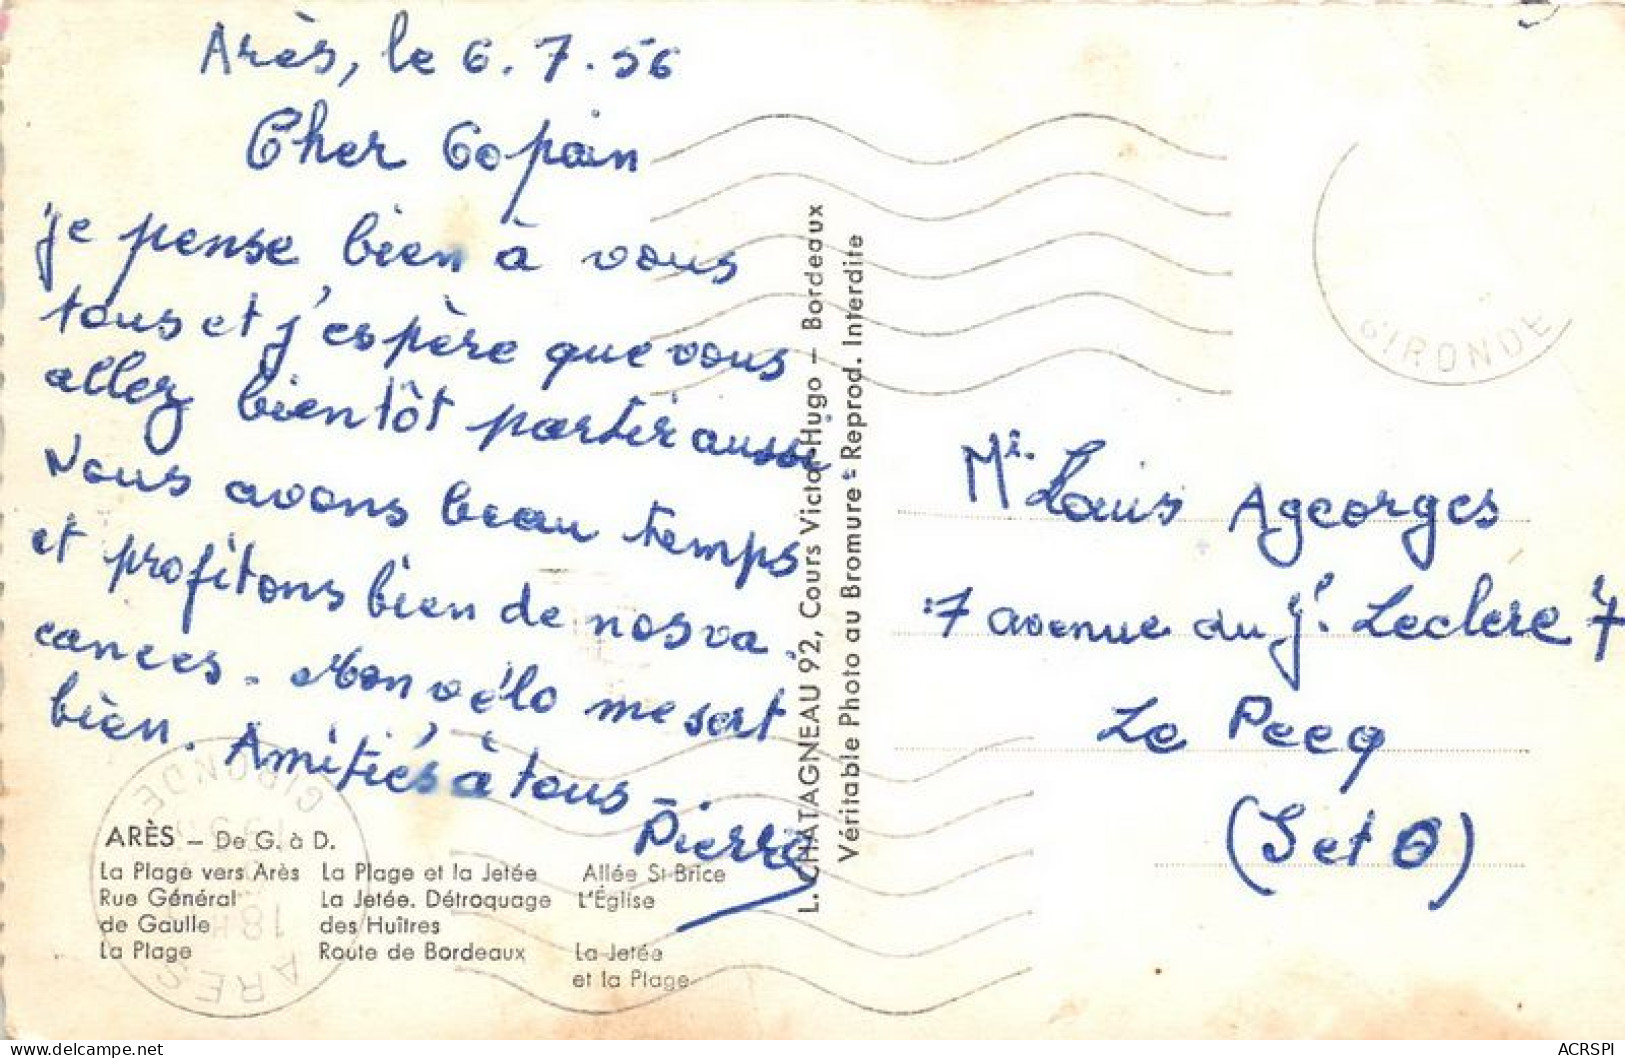 Arès, le 6.7.56
Cher Copain
je pense bien à vous
tous et j'espère que vous
allez bientôt partir aussi
Nous avons beau temps
et profitons bien de nos va.
cances. Mon vélo me sert
bien. Amitiés à tous -.
Pierre
ARÈS – De G. à D.
La Plage vers Arès La Plage et la Jetée Allée St-Brice
Rue Général La Jetée. Détroquage L'Église
de Gaulle des Huîtres
La Plage Route de Bordeaux La Jetée
et la Plage
L. CHATAGNEAU 92, Cours Victor-Hugo – Bordeaux
Véritable Photo au Bromure - Reprod. Interdite
GIRONDE
Mr. Louis Ageorges
7 avenue du Gl. Leclerc 7
Le Pecq
(S et O)
ARES
18H
GIRONDE
ACRSPI